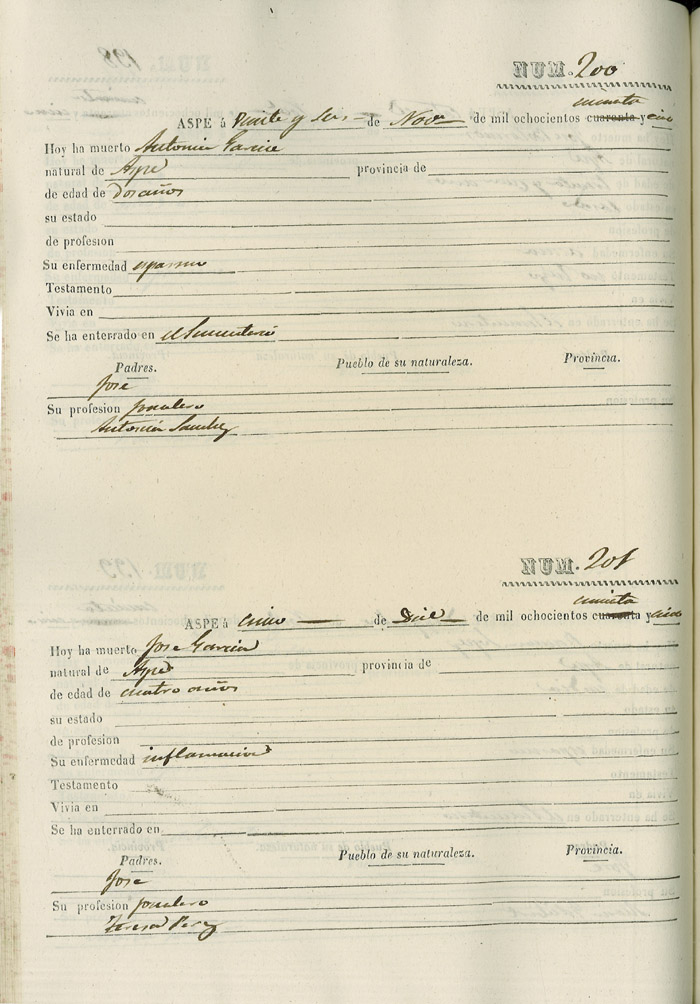 NUM. 200
cincuenta
ASPE á Veinte y seis de Novre de mil ochocientos cuarenta y cinco
Hoy ha muerto Antonia Garcia
natural de Aspe provincia de
de edad de dos años
su estado
de profesion
Su enfermedad espasmo
Testamento
Vivia en
Se ha enterrado en el Sementerio
Padres. Pueblo de su naturaleza. Provincia.
Jose
Su profesion jornalero
Antonia Sanchez
NUM. 201
cincuenta
ASPE á cinco de Dice de mil ochocientos cuarenta y cinco
Hoy ha muerto Jose Garcia
natural de Aspe provincia de
de edad de cuatro años
su estado
de profesion
Su enfermedad inflamacion
Testamento
Vivia en
Se ha enterrado en
Padres. Pueblo de su naturaleza. Provincia.
Jose
Su profesion jornalero
Teresa Perez